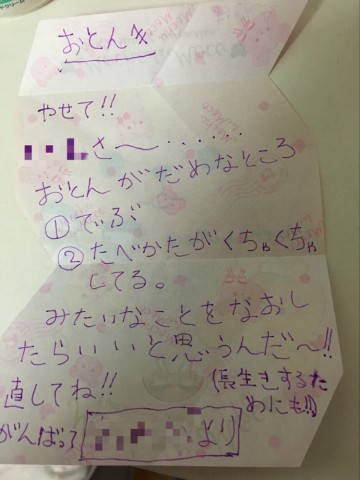 おとんへ
やせて!!
さ〜‥‥‥
おとんがだめなところ
①でぶ
②たべかたがくちゃくちゃ
してる。
みたいなことをなおし
たらいいと思うんだ〜!!
直してね!!
(長生きするた
めにも!!)
がんばって
より